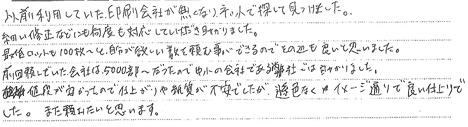 以前利用していた印刷会社が無くなり、ネットで探して見つけました。
細い修正などにも何度も対応していただき助かりました。
最低ロットも100枚〜と、自分が欲しい数を頼む事ができるのでその辺も良いと思いました。
前回頼んでいた会社は5000部〜だったので中小の会社である弊社では助かりました。
値段が安かったので仕上がりや紙質が不安でしたが、遜色なくイメージ通りで良い仕上りで
した。また頼みたいと思います。